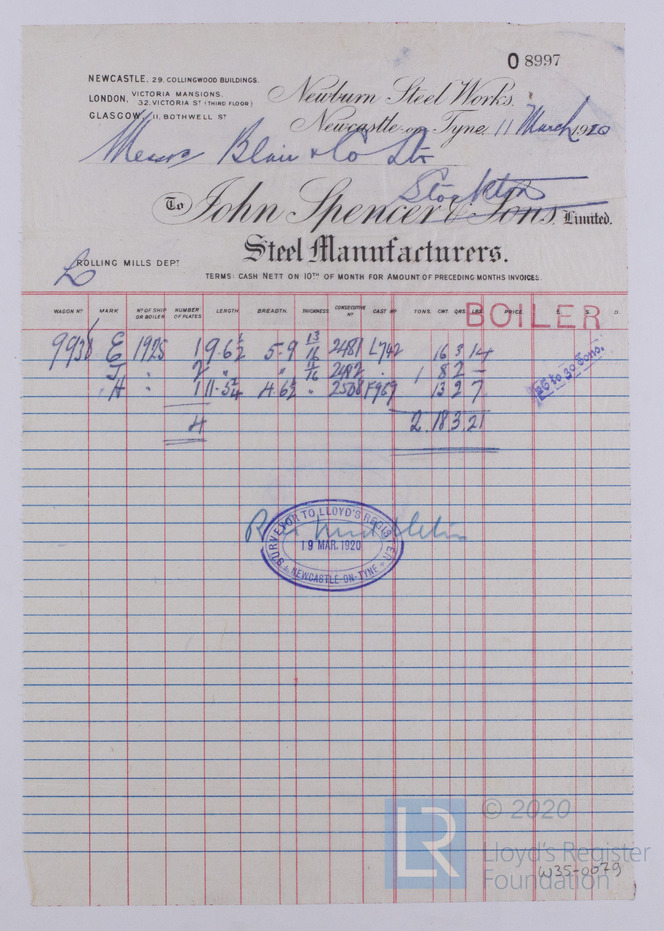 O 8997
NEWCASTLE, 29, COLLINGWOOD BUILDINGS.
LONDON, VICTORIA MANSIONS,
32, VICTORIA ST (THIRD FLOOR)
GLASGOW, 11, BOTHWELL ST
Newburn Steel Works,
Newcastle-on-Tyne, 11 March 1920
Messrs Blair & Co Ltd
Stockton
To John Spencer & Sons, Limited.
Steel Manufacturers.
ROLLING MILLS DEPT
TERMS: CASH NETT ON 10TH OF MONTH FOR AMOUNT OF PRECEDING MONTHS INVOICES.
WAGON No MARK No OF SHIP OR BOILER NUMBER OF PLATES LENGTH BREADTH THICKNESS CONSECUTIVE No CAST No TONS. CWT. QRS. LBS. PRICE. £ S. D
BOILER
9938 E 1925 1 9-6 1/2 5-9 13/16 2481 L742 16 3 14
2 " " 11/16 2492 " 1 8 2 -
" H " 1 11-5 4.6 1/2 " 2508 13 2 7
4 2. 18 3. 21
26 to 30 tons.
SURVEYOR TO LLOYD'S REGISTER
19 MAR. 1920
NEWCASTLE-ON-TYNE
© 2020
LR
Lloyd's Register
Foundation
W35-0079